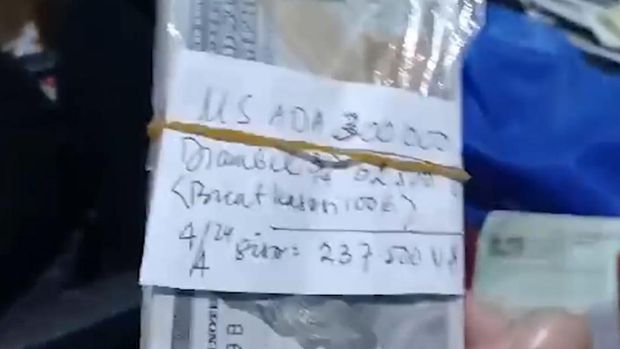 US ADA 300 000
Diambil 62 500
(Buat kasasi 100 K)
4/24 sisa: 237.500 US
A